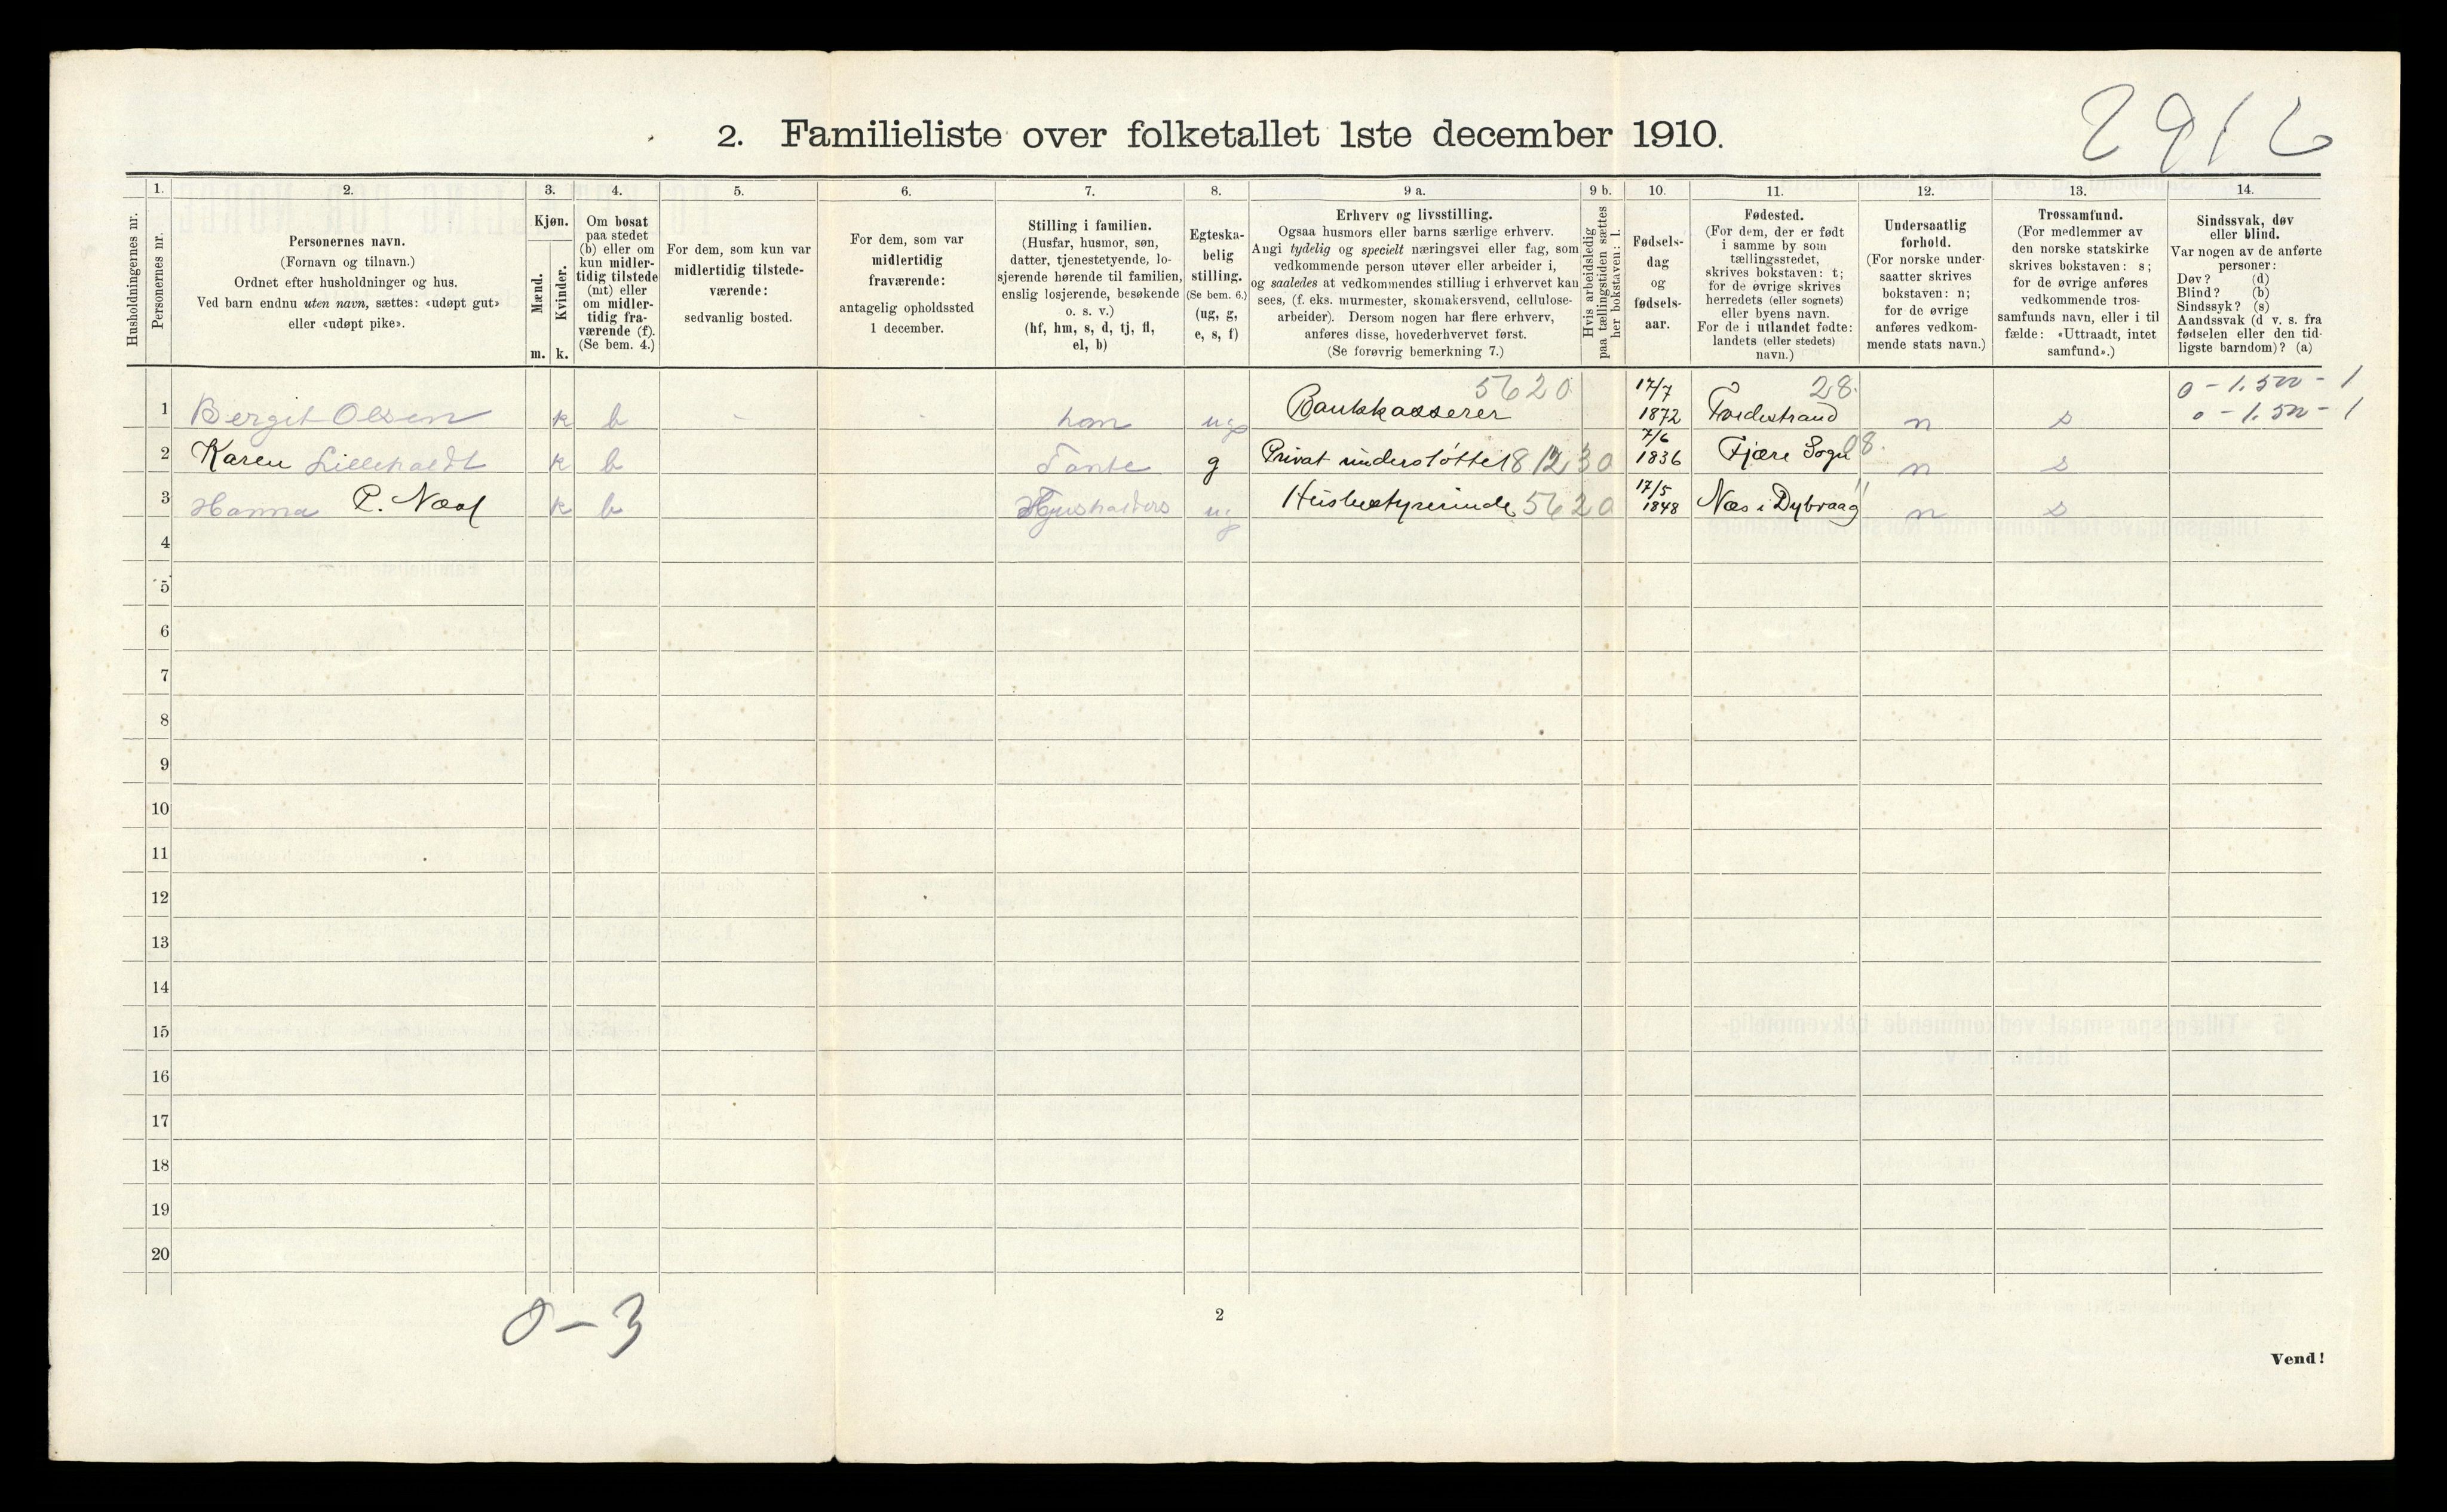 2916
2. Familieliste over folketallet 1ste december 1910.
Husholdningernes nr.
1.
Personernes nr.
2.
Personernes navn.
(Fornavn og tilnavn.)
Ordnet efter husholdninger og hus.
Ved barn endnu uten navn, sættes: «udøpt gut»
eller «udøpt pike».
3.
Kjøn.
Mænd.
Kvinder.
m. k.
4.
Om bosat
paa stedet
(b) eller om
kun midler-
tidig tilstede
(mt) eller
om midler-
tidig fra-
værende (f).
(Se bem. 4.)
5.
For dem, som kun var
midlertidig tilstede-
værende:
sedvanlig bosted.
6.
For dem, som var
midlertidig
fraværende:
antagelig opholdssted
1 december.
7.
Stilling i familien.
(Husfar, husmor, søn,
datter, tjenestetyende, lo-
sjerende hørende til familien,
enslig losjerende, besøkende
o. s. v.)
(hf, hm, s, d, tj, fl,
el, b)
8.
Egteska-
belig
stilling.
(Se bem. 6.)
(ug, g,
e, s, f)
9 a.
Erhverv og livsstilling.
Ogsaa husmors eller barns særlige erhverv.
Angi tydelig og specielt næringsvei eller fag, som
vedkommende person utøver eller arbeider i,
og saaledes at vedkommendes stilling i erhvervet kan
sees, (f. eks. murmester, skomakersvend, cellulose-
arbeider). Dersom nogen har flere erhverv,
anføres disse, hovederhvervet først.
(Se forøvrig bemerkning 7.)
9 b.
Hvis arbeidsledig
paa tællingstiden sættes
her bokstaven: l.
10.
Fødsels-
dag
og
fødsels-
aar.
11.
Fødested.
(For dem, der er født
i samme by som
tællingsstedet,
skrives bokstaven: t;
for de øvrige skrives
herredets (eller sognets)
eller byens navn.
For de i utlandet fødte:
landets (eller stedets)
navn.)
12.
Undersaatlig
forhold.
(For norske under-
saatter skrives
bokstaven: n;
for de øvrige
anføres vedkom-
mende stats navn.)
13.
Trossamfund.
(For medlemmer av
den norske statskirke
skrives bokstaven: s;
for de øvrige anføres
vedkommende tros-
samfunds navn, eller i til
fælde: «Uttraadt, intet
samfund».)
14.
Sindssvak, døv
eller blind.
Var nogen av de anførte
personer:
Døv? (d)
Blind? (b)
Sindssyk? (s)
Aandssvak (d v. s. fra
fødselen eller den tid-
ligste barndom)? (a)
5620 17/7 28. 0 - 1.500 - 1
1 Bergit Olsen k b - - hm ug Bankkasserer 1872 Tvedestrand n s 0 - 1.500 - 1
2 Karen Lilleholdt k b Tante g Privat understøttet 81230 7/6 1836 Fjære Sogn 28. n s
3 Hanna P. Næs k b Husholders ug Husbestyrerinde 5620 17/5 1848 Næs i Dybvaag n s
4
5
6
7
8
9
10
11
12
13
14
15
16
17
18
19
20
0 - 3
2
Vend!